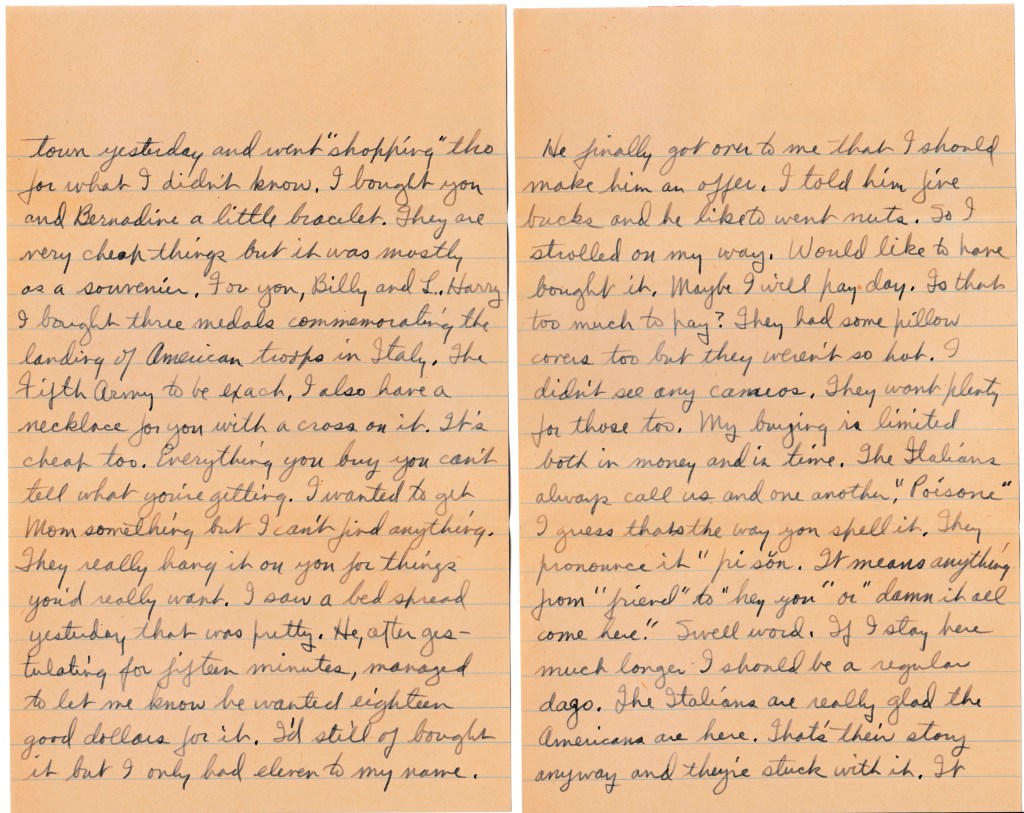 town yesterday and went "shopping" tho
for what I didn't know. I bought you
and Bernadine a little bracelet. They are
very cheap things but it was mostly
as a souvenier. For you, Billy and L. Harry
I bought three medals commemorating the
landing of American troops in Italy. The
Fifth Army to be exach. I also have a
necklace for you with a cross on it. It's
cheap too. Everything you buy you can't
tell what you're getting. I wanted to get
Mom something but I can't find anything.
They really hang it on you for things
you'd really want. I saw a bed spread
yesterday that was pretty. He, after ges-
tulating for fifteen minutes, managed
to let me know he wanted eighteen
good dollars for it. I'd still of bought
it but I only had eleven to my name.
He finally got over to me that I should
make him an offer. I told him five
bucks and he liketo went nuts. So I
strolled on my way. Would like to have
bought it. Maybe I will pay day. Is that
too much to pay? They had some pillow
covers too but they weren't so hot. I
didn't see any cameos. They want plenty
for those too. My buying is limited
both in money and in time. The Italians
always call us and one another, "Poisone"
I guess thats the way you spell it. They
pronounce it "pi sŏn. It means anything
from "friend" to "hey you" or "damn it all
come here." Swell word. If I stay here
much longer I should be a regular
dago. The Italians are really glad the
Americans are here. That's their story
anyway and they're stuck with it. It